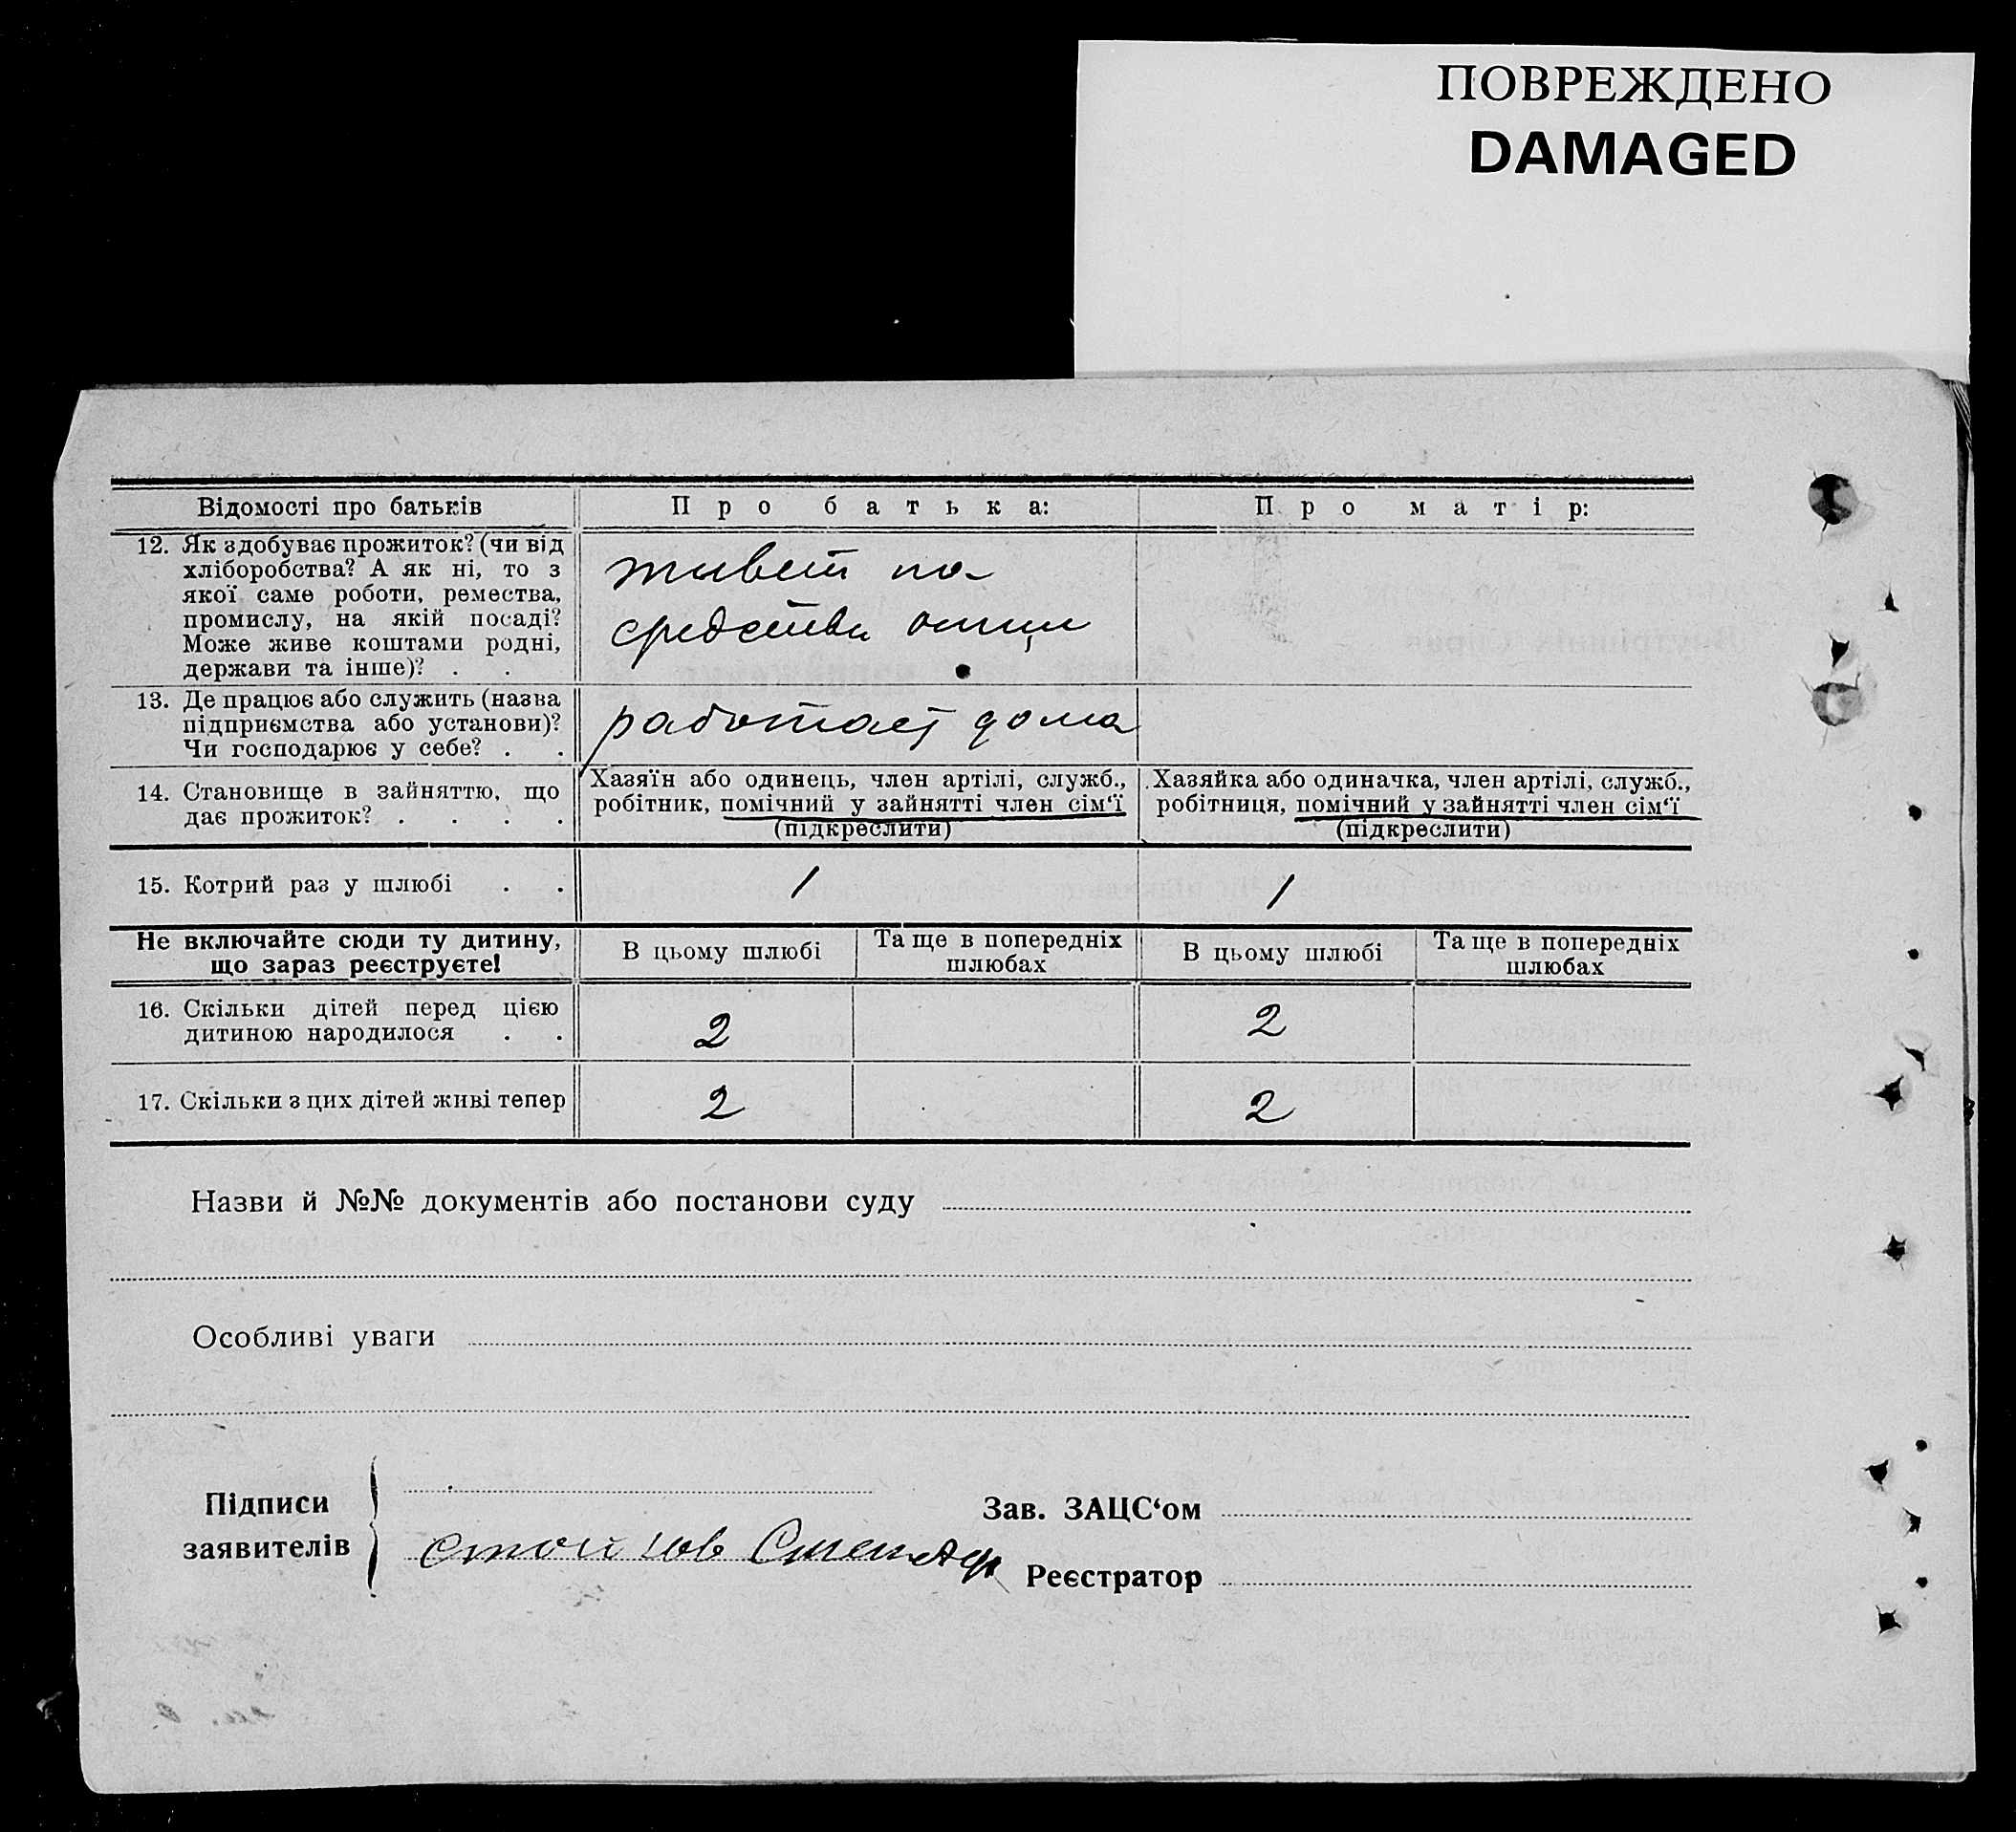 ПОВРЕЖДЕНО
DAMAGED
Відомості про батьків
Про батька:
Про матір:
12. Як здобуває прожиток? (чи від
хліборобства? А як ні, то з
якої саме роботи, ремества,
промислу, на якій посаді?
Може живе коштами родні,
держави та інше)? . .
живет на
средства отца
13. Де працює або служить (назва
підприємства або установи)?
Чи господарює у себе? . .
работает дома
14. Становище в зайняттю, що
дає прожиток? . . . .
Хазяїн або одинець, член артілі, служб.,
робітник, помічний у зайнятті член сім‘ї
(підкреслити)
Хазяйка або одиначка, член артілі, служб.,
робітниця, помічний у зайнятті член сім‘ї
(підкреслити)
15. Котрий раз у шлюбі . .
1
1
Не включайте сюди ту дитину,
що зараз реєструєте!
В цьому шлюбі
Та ще в попередніх
шлюбах
В цьому шлюбі
Та ще в попередніх
шлюбах
16. Скільки дітей перед цією
дитиною народилося . .
2
2
17. Скільки з цих дітей живі тепер
2
2
Назви й №№ документів або постанови суду
Особливі уваги
Підписи
заявителів
Зав. ЗАЦС‘ом
Реєстратор